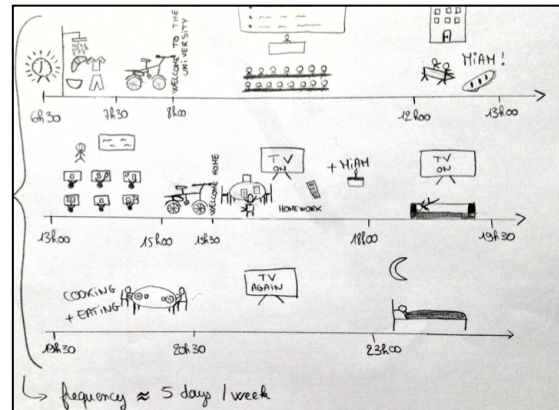 WELCOME TO THE
UNIVERSITY
MIAM!
6h30
7h30
8h00
12h00
13h00
TV
ON
WELCOME HOME
HOMEWORK
+ MIAM
TV
ON
13h00
15h00
15h30
18h00
19h30
COOKING
+ EATING
TV
AGAIN
19h30
20h30
23h00
frequency ≈ 5 days / week